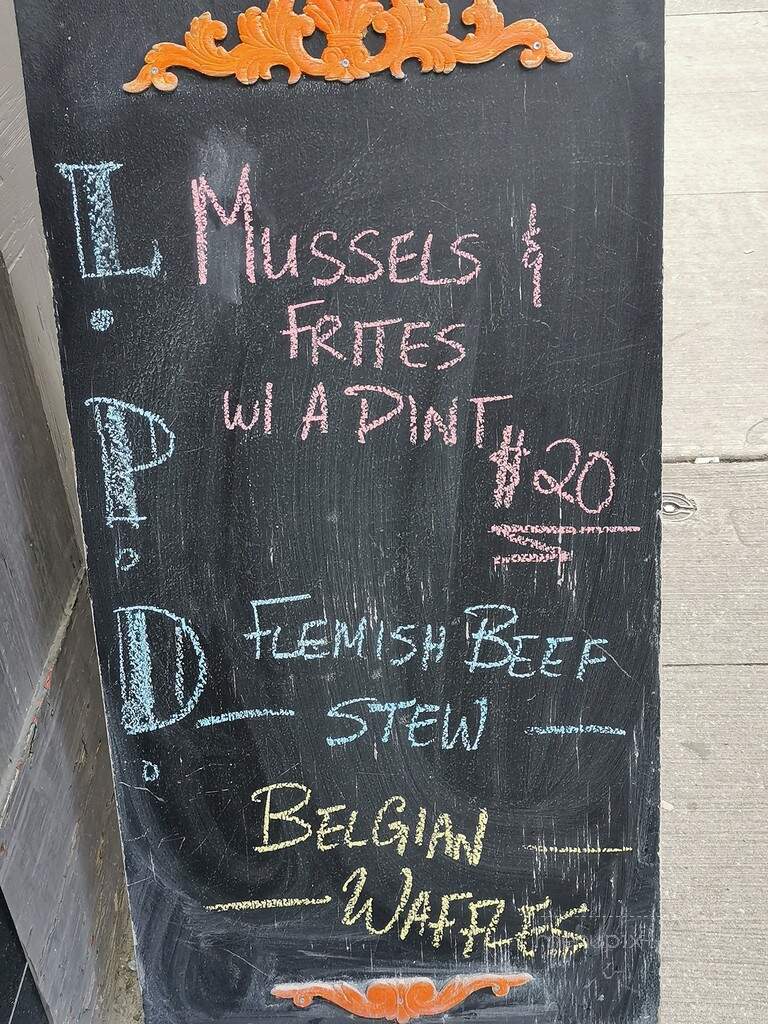 L.
P.
D.
MUSSELS &
FRITES
W/ A PINT
$20
FLEMISH BEEF
— STEW —
BELGIAN —
— WAFFLES